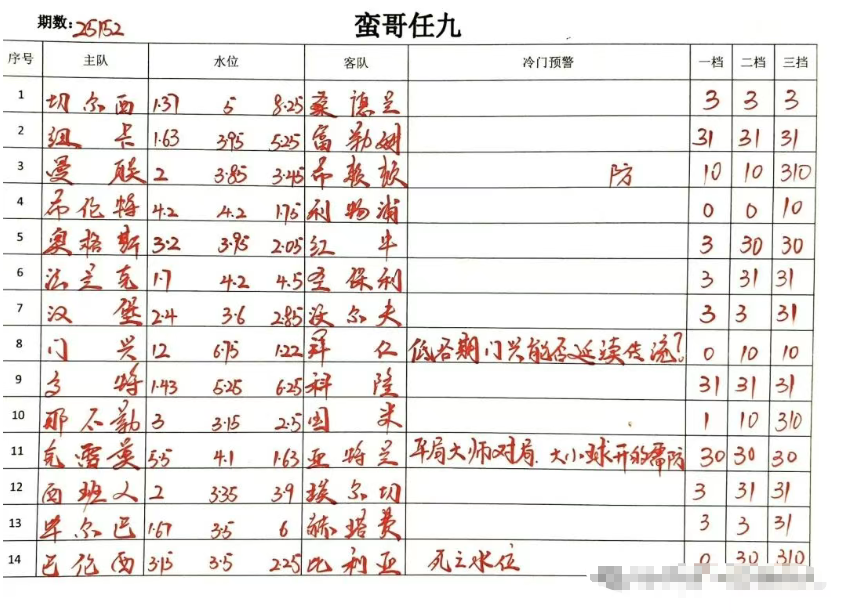 期数: 25152 蛮哥任九
序号 主队 水位 客队 冷门预警 一档 二档 三档
1 切尔西 1.37 5 8.25 桑德兰 3 3 3
2 纽卡 1.63 3.95 5.25 富勒姆 31 31 31
3 曼联 2 3.85 3.45 布莱顿 防 10 10 310
4 布伦特 4.2 4.2 1.75 利物浦 0 0 10
5 奥格斯 3.2 3.95 2.05 红牛 3 30 30
6 法兰克 1.7 4.2 4.5 圣保利 3 31 31
7 汉堡 2.4 3.6 2.85 沃尔夫 3 3 31
8 门兴 12 6.75 1.22 拜仁 低谷期门兴能否延续传流? 0 10 10
9 多特 1.43 5.25 6.25 科隆 31 31 31
10 那不勒 3 3.15 2.5 国米 1 10 310
11 克雷莫 5.5 4.1 1.63 亚特兰 平局大师对局、大小球开的需防 30 30 30
12 西班人 2 3.35 3.9 埃尔切 3 31 31
13 毕尔巴 1.67 3.5 6 赫塔费 3 3 31
14 巴伦西 3.15 3.5 2.25 比利亚 死亡水位 0 30 310